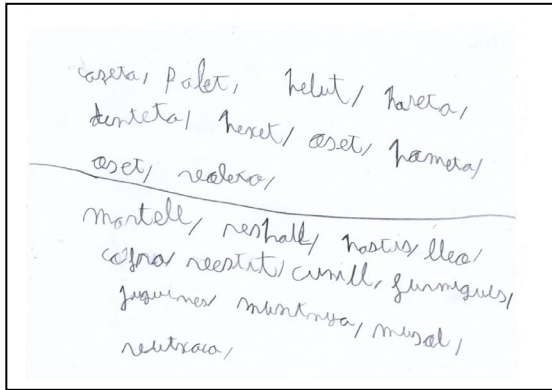 caseta, palet, pelut, pareta,
denteta, pexet, oset, pometa,
oset, realera,
martell, respall, pastis, lleo,
cofra, veestit, cunill, furmigues,
juguines, muntnya, musol,